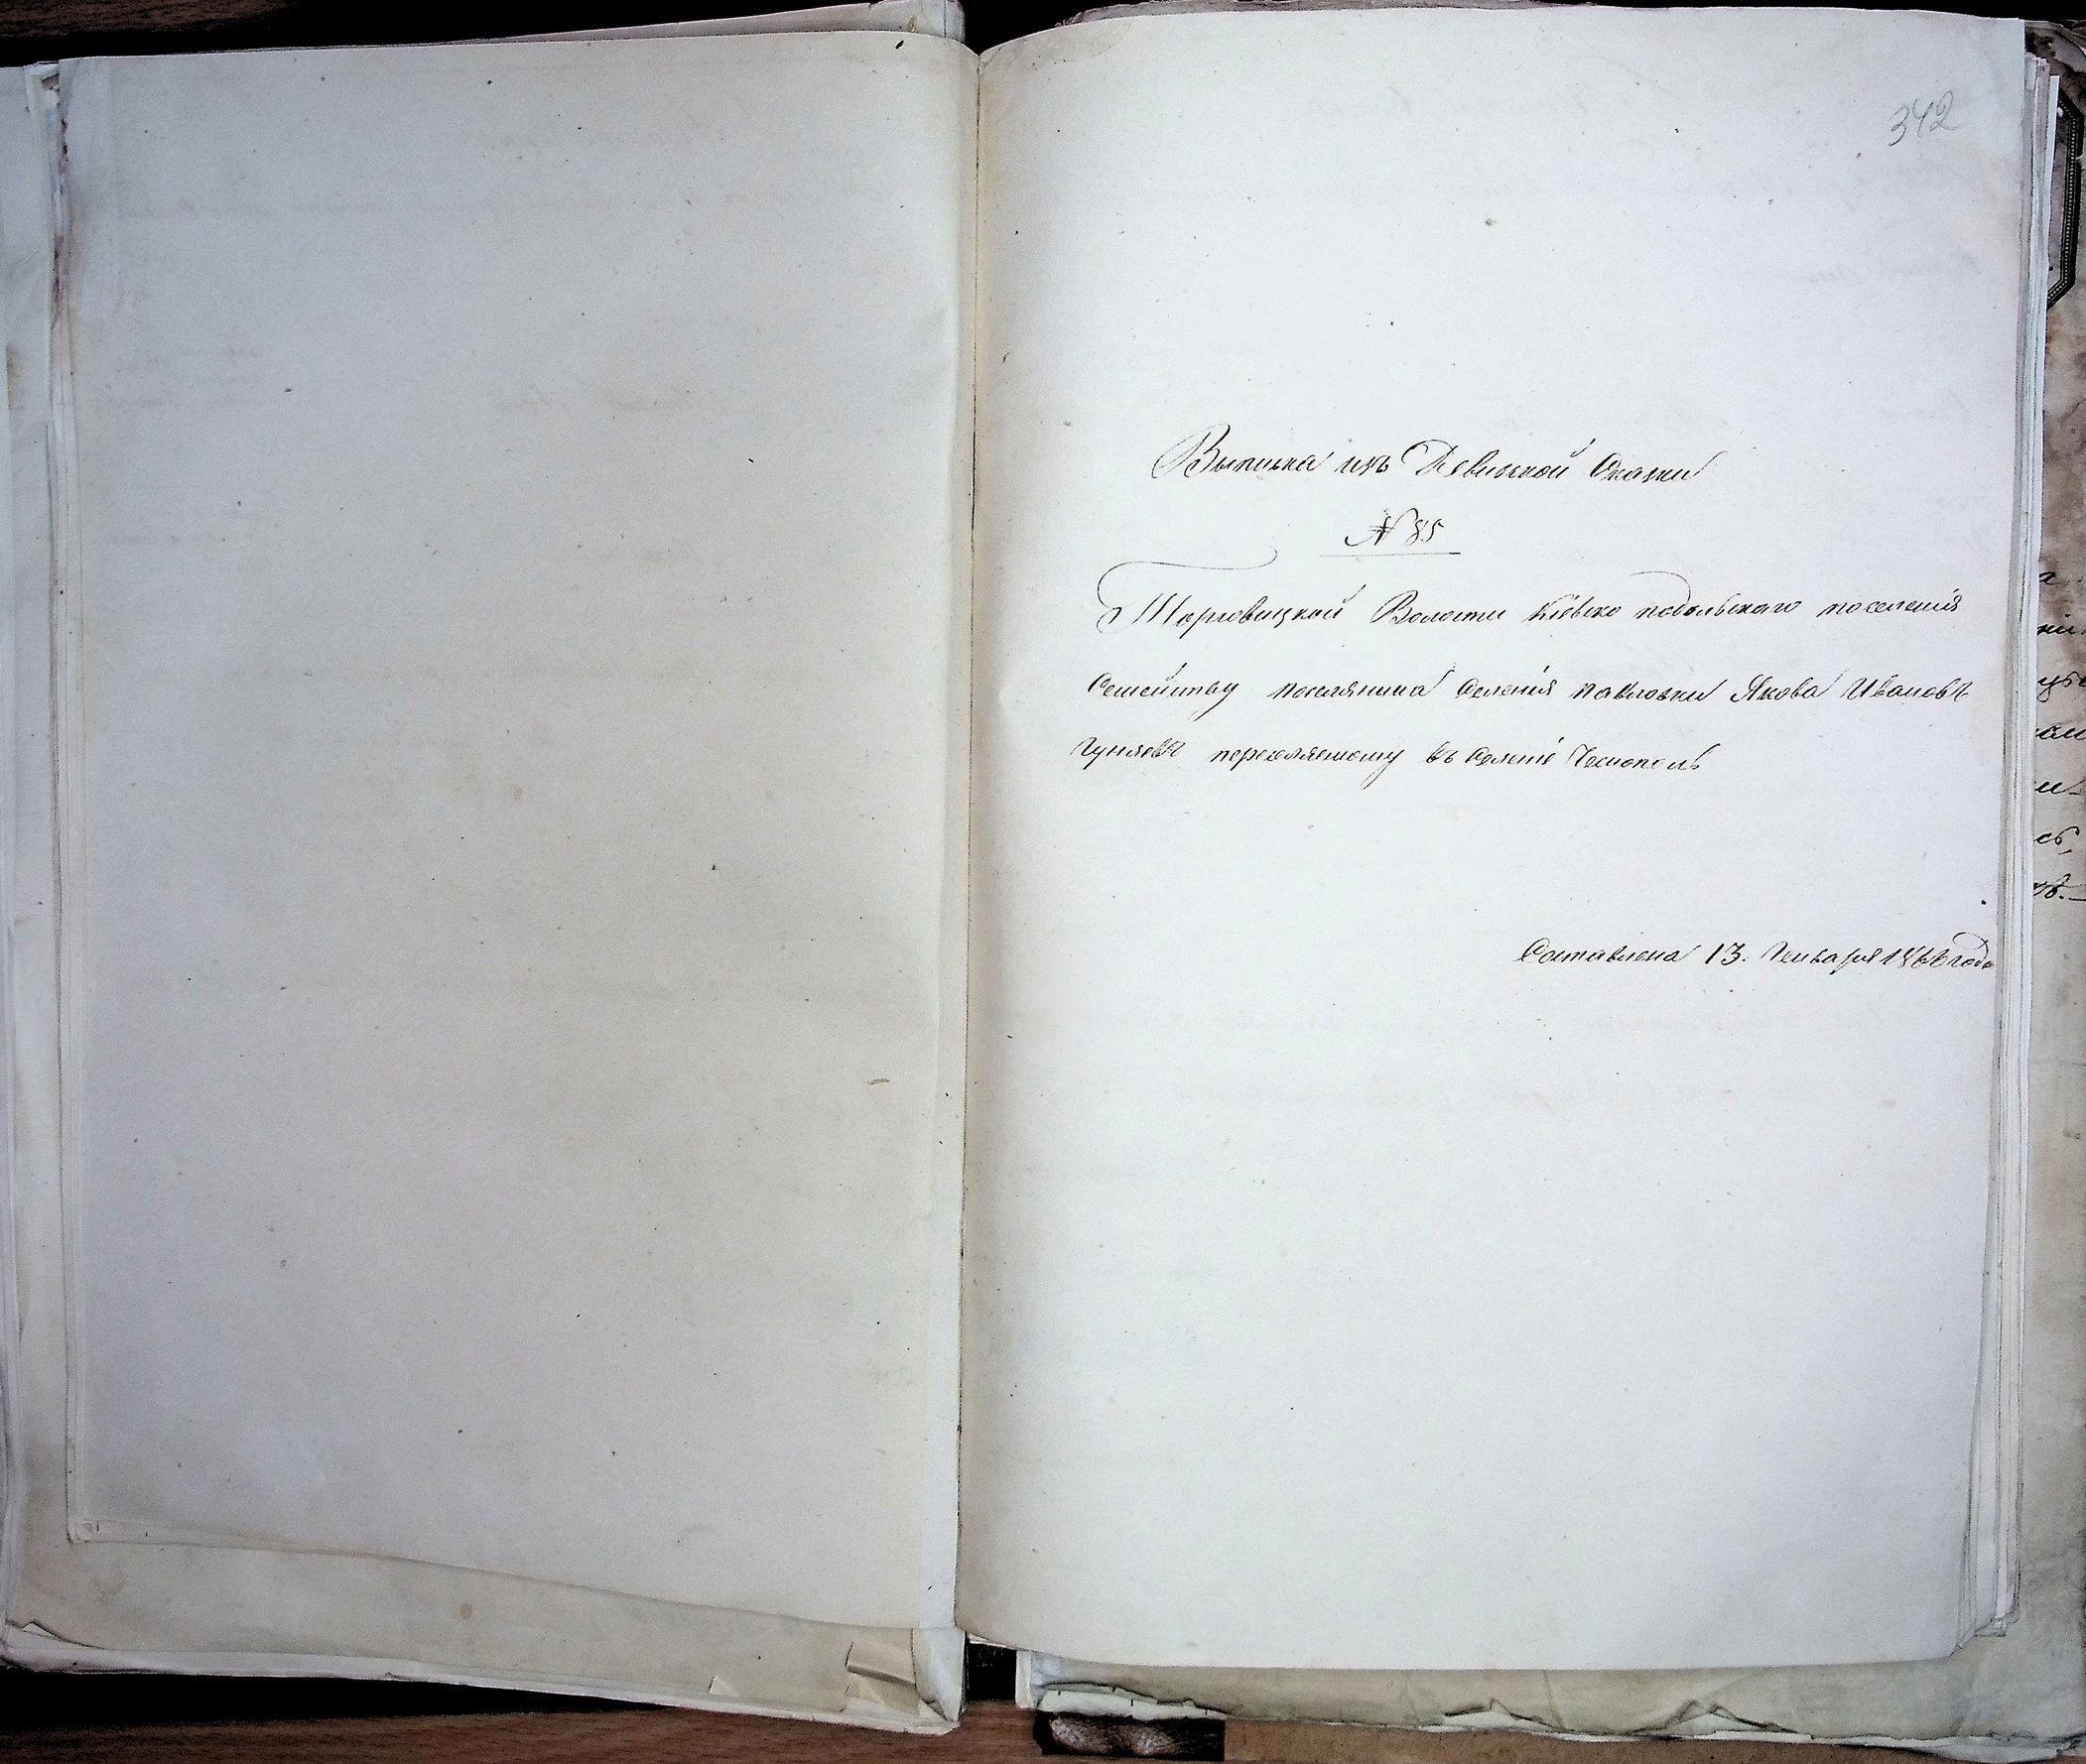 342
Выписка изъ Ревизской Сказки
№ 85
Торговицкой Волости Кіевско подольскаго поселенія
Семейству поселянина Селенія Павловки Якова Иванова
переселяемому въ Селеніе
Составлена 13. Генваря 1866 года